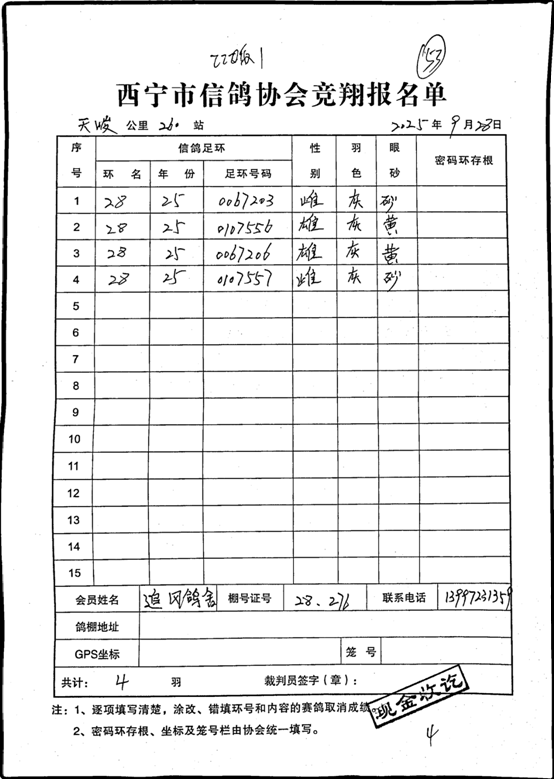 153
西宁市信鸽协会竞翔报名单
天峻 公里 260 站 2025 年 9 月 28 日
序号 信鸽足环 性别 羽色 眼砂 密码环存根
环 名 年 份 足环号码
1 28 25 0067203 雌 灰 砂
2 28 25 0107556 雄 灰 黄
3 28 25 0067206 雄 灰 黄
4 28 25 0107557 雌 灰 砂
5
6
7
8
9
10
11
12
13
14
15
会员姓名 追风鸽舍 棚号证号 28、276 联系电话 13997231359
鸽棚地址
GPS坐标 笼 号
共计: 4 羽 裁判员签字(章):
现金收讫
注:1、逐项填写清楚,涂改、错填环号和内容的赛鸽取消成绩。
2、密码环存根、坐标及笼号栏由协会统一填写。
4